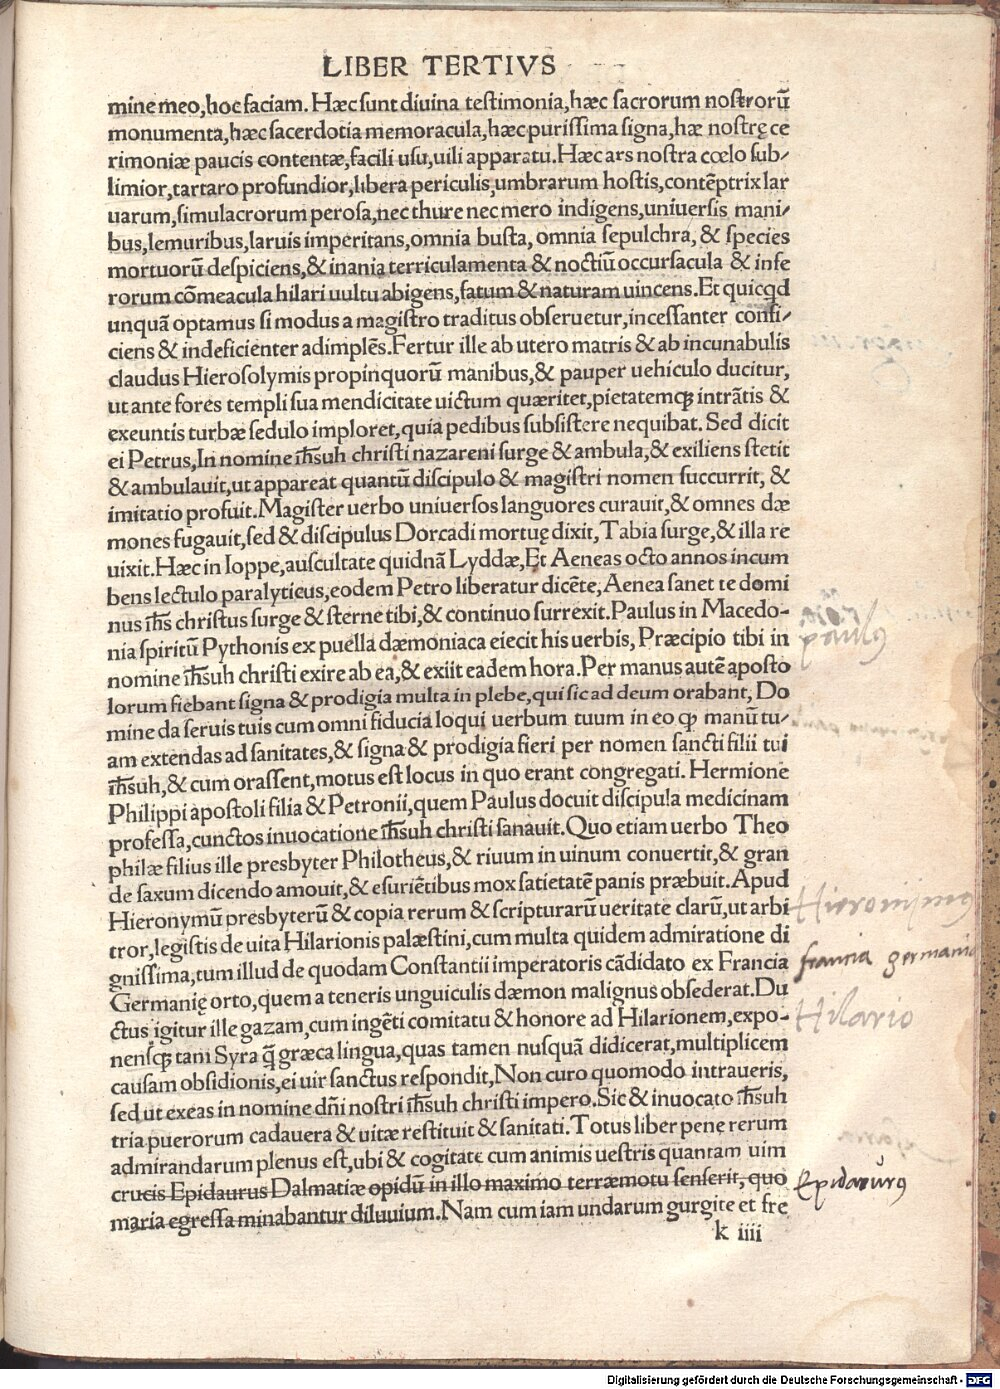 LIBER TERTIVS
mine meo,hoc faciam. Hæc sunt diuina testimonia,hæc sacrorum nostrorũ
monumenta,hæc sacerdotia memoracula,hæc purissima signa,hæ nostrę ce
rimoniæ paucis contentæ,facili usu,uili apparatu.Hæc ars nostra cœlo sub/
limior,tartaro profundior,libera periculis,umbrarum hostis,contẽptrix lar
uarum,simulacrorum perosa,nec thure nec mero indigens,uniuersis mani/
bus,lemuribus,laruis imperitans,omnia busta, omnia sepulchra, & species
mortuorũ despiciens,& inania terriculamenta & noctiũ occursacula & infe
rorum cõmeacula hilari uultu abigens,fatum & naturam uincens.Et quicꝗd
unquã optamus si modus a magistro traditus obseruetur,incessanter confi/
ciens & indeficienter adimplẽs.Fertur ille ab utero matris & ab incunabulis
claudus Hierosolymis propinquorũ manibus,& pauper uehiculo ducitur,
ut ante fores templi sua mendicitate uictum quæritet,pietatemqꝫ intrãtis &
exeuntis turbæ sedulo imploret,quia pedibus subsistere nequibat. Sed dicit
ei Petrus,In nomine ih̃suh christi nazareni surge & ambula,& exiliens stetit
& ambulauit,ut appareat quantũ discipulo & magistri nomen succurrit, &
imitatio profuit.Magister uerbo uniuersos languores curauit,& omnes dæ
mones fugauit,sed & discipulus Dorcadi mortuę dixit,Tabia surge,& illa re
uixit.Hæc in Ioppe,auscultate quidnã Lyddæ,Et Aeneas octo annos incum
bens lectulo paralyticus,eodem Petro liberatur dicẽte,Aenea sanet te domi
nus ih̃s christus surge & sterne tibi,& continuo surrexit.Paulus in Macedo-
nia spiritũ Pythonis ex puella dæmoniaca eiecit his uerbis, Præcipio tibi in
nomine ih̃suh christi exire ab ea,& exiit eadem hora.Per manus autẽ aposto
lorum fiebant signa & prodigia multa in plebe,qui sic ad deum orabant, Do
mine da seruis tuis cum omni fiducia loqui uerbum tuum in eo ꝙ manũ tu/
am extendas ad sanitates,& signa & prodigia fieri per nomen sancti filii tui
ih̃suh,& cum orassent,motus est locus in quo erant congregati. Hermione
Philippi apostoli filia & Petronii,quem Paulus docuit discipula medicinam
professa,cunctos inuocatione ih̃suh christi sanauit.Quo etiam uerbo Theo
philæ filius ille presbyter Philotheus,& riuum in uinum conuertit,& gran
de saxum dicendo amouit,& esuriẽtibus mox satietatẽ panis præbuit.Apud
Hieronymũ presbyterũ & copia rerum & scripturarũ ueritate clarũ,ut arbi
tror,legistis de uita Hilarionis palæstini,cum multa quidem admiratione di
gnissima,tum illud de quodam Constantii imperatoris cãdidato ex Francia
Germanię orto,quem a teneris unguiculis dæmon malignus obsederat.Du
ctus igitur ille gazam,cum ingẽti comitatu & honore ad Hilarionem,expo-
nensqꝫ tam Syra q̃ græca lingua,quas tamen nusquã didicerat,multiplicem
causam obsidionis,ei uir sanctus respondit,Non curo quomodo intraueris,
sed ut exeas in nomine dñi nostri ih̃suh christi impero.Sic & inuocato ih̃suh
tria puerorum cadauera & uitæ restituit & sanitati.Totus liber pene rerum
admirandarum plenus est,ubi & cogitate cum animis uestris quantam uim
crucis Epidaurus Dalmatiæ opidũ in illo maximo terræmotu senserit, quo
maria egressa minabantur diluuium.Nam cum iam undarum gurgite et fre
k iiii
paulus
Hieronimus
francia germanie
Hilario
Epidaurus
Digitalisierung gefördert durch die Deutsche Forschungsgemeinschaft - DFG